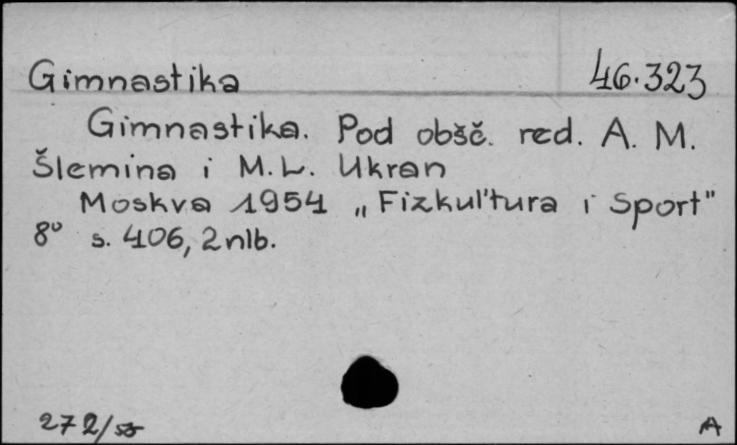 Gimnastika 46.323
Gimnastika. Pod obšč. red. A. M.
Šlemina i M.L. Ukran
Moskva 1954 „Fizkul'tura i Sport"
8º s. 406, 2 nlb.
272/55 A